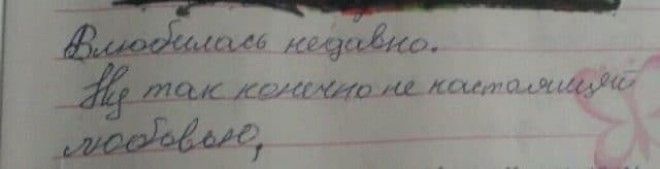 Влюбилась недавно.
Ну так конечно не настоящей
любовью,